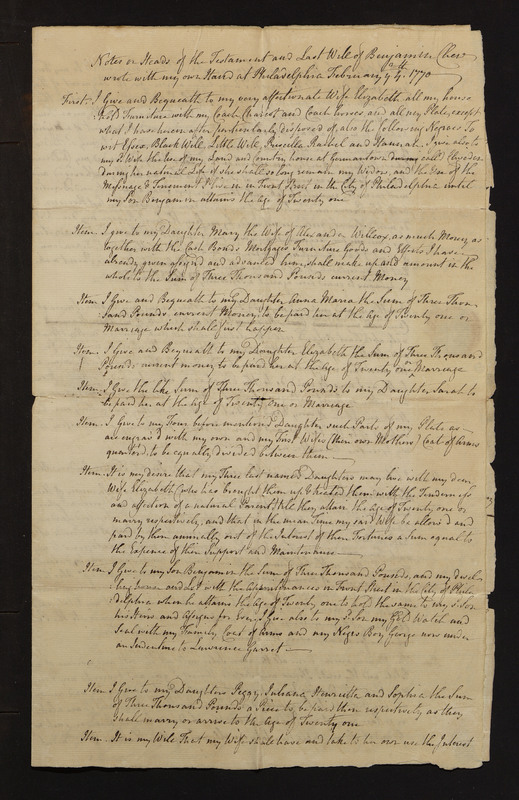 Notes or Heads of the Testament and Last Will of Benjamin Chew
wrote with my own Hand at Philadelphia February 4th 1770
First. I Give and Bequeath to my very affectionate Wife Elizabeth all my house
hold Furniture with my Coach Chariot and Coach horses and all my Plate, except
what I have herein after particularly disposed of, also the following Negroes to
wit Essex, Black Will, Little Will, Priscilla, Rachel and Hannah. I give also to
my sd Wife the Use of my Land and Country house at Germantown called Cliveden
during her natural Life if she shall so long remain my Widow, and the Use of the
Messuage & Tenement I live in in Front Street in the City of Philadelphia until
my Son Benjamin attains the Age of Twenty one
Item. I give to my Daughter Mary the Wife of Alexander Willcox, as much Money as
together with the Cash Bonds Mortgages Furniture Goods and Effects I have
already given assigned and advanced him, shall make up and amount in the
whole to the Sum of Three Thousand Pounds current Money
Item I Give and Bequeath to my Daughter Anna Maria the Sum of Three Thou
sand Pounds, current Money, to be paid her at the Age of Twenty one or
Marriage which shall first happen
Item. I Give and Bequeath to my Daughter Elizabeth the Sum of Three Thousand
Pounds current money to be paid her at the Age of Twenty one or Marriage
Item, I give the like Sum of Three Thousand Pounds to my Daughter Sarah to
be paid her at the Age of Twenty one or Marriage
Item. I give to my Four before mentioned Daughters such Parts of my Plate as
are engrav'd with my own and my First Wifes (their own Mothers) Coat of Arms
quartered to be equally divided between them
Item. It is my desire that my Three last named Daughters may live with my dear
Wife Elizabeth (who has brought them up & treated them with the Tenderness
and affection of a natural Parent) till they attain the Age of Twenty one or
marry respectively, and that in the mean Time my said Wife be allow'd and
paid by them annually out of the Interest of their Fortunes a Sum equal to
the Expence of their Support and Maintenance
Item I Give to my Son Benjamin the Sum of Three Thousand Pounds, and my dwel
ling house and Lot with the Appurtenances in Front Street in the City of Phila
delphia when he attains the Age of Twenty one to hold the same to my sd Son
his Heirs and Assigns for Ever, I Give also to my sd Son my Gold Watch and
Seal with my Family Coat of Arms and my Negro Boy George now under
an Indenture to Lawrence Garret
Item I Give to my Daughters Peggy, Juliana, Henrietta and Sophia the Sum
of Three Thousand Pounds a Piece to be paid them respectively as they
shall marry or arrive to the Age of Twenty one
Item. It is my Will That my Wife shall have and take to her own use the Interest